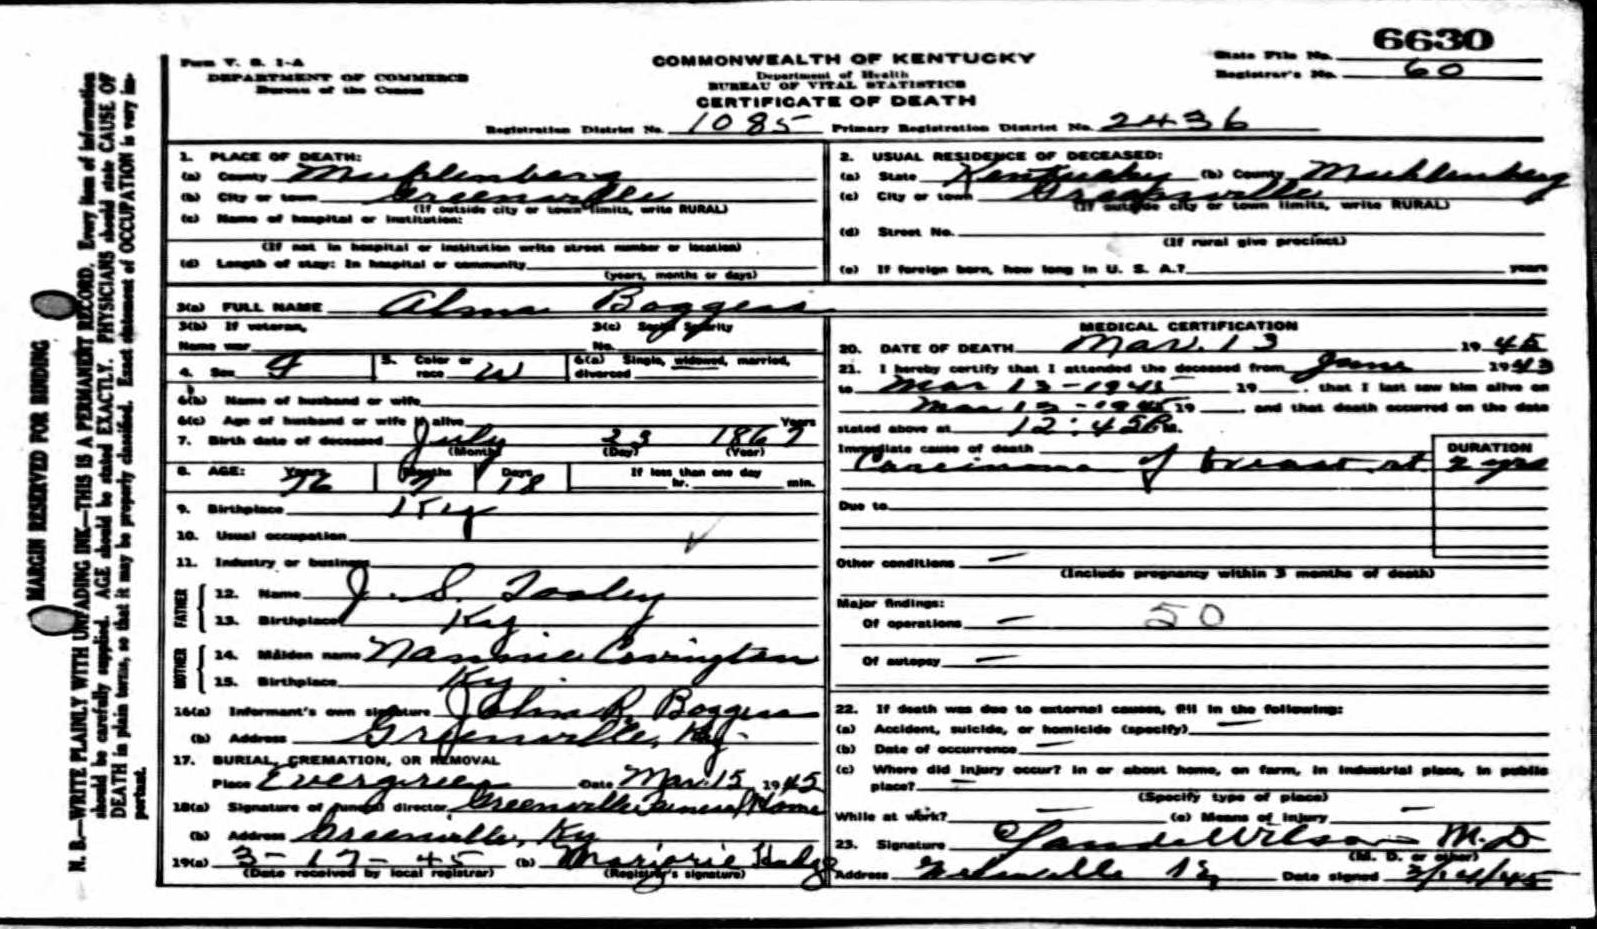 Form V. S. 1-A
DEPARTMENT OF COMMERCE
Bureau of the Census
COMMONWEALTH OF KENTUCKY
Department of Health
BUREAU OF VITAL STATISTICS
CERTIFICATE OF DEATH
State File No. 6630
Registrar's No. 60
Registration District No. 1085 Primary Registration District No. 2436
MARGIN RESERVED FOR BINDING
N. B.—WRITE PLAINLY WITH UNFADING INK—THIS IS A PERMANENT RECORD. Every item of information
should be carefully supplied. AGE should be stated EXACTLY. PHYSICIANS should state CAUSE OF
DEATH in plain terms, so that it may be properly classified. Exact statement of OCCUPATION is very im-
portant.
1. PLACE OF DEATH:
(a) County Muhlenberg
(b) City or town Greenville
(If outside city or town limits, write RURAL)
(c) Name of hospital or institution:
(If not in hospital or institution write street number or location)
(d) Length of stay: In hospital or community
(years, months or days)
2. USUAL RESIDENCE OF DECEASED:
(a) State Kentucky (b) County Muhlenberg
(c) City or town Greenville
(If outside city or town limits, write RURAL)
(d) Street No.
(If rural give precinct)
(e) If foreign born, how long in U. S. A.? years
3(a) FULL NAME Alma Boggess
3(b) If veteran,
Name war
3(c) Social Security
No.
4. Sex F 5. Color or race W 6(a) Single, widowed, married, divorced
6(b) Name of husband or wife
6(c) Age of husband or wife if alive Years
7. Birth date of deceased July 23 1867
(Month) (Day) (Year)
8. AGE: Years 76 Months 7 Days 18 If less than one day
hr. min.
9. Birthplace Ky
10. Usual occupation
11. Industry or business
FATHER
12. Name J. S. Tooley
13. Birthplace Ky
MOTHER
14. Maiden name Nannie Covington
15. Birthplace Ky
16(a) Informant's own signature John R. Boggess
(b) Address Greenville, Ky.
17. BURIAL, CREMATION, OR REMOVAL
Place Evergreen Date Mar. 15, 1945
18(a) Signature of funeral director Greenville Funeral Home
(b) Address Greenville, Ky
19(a) 3-17-45 (b) Marjorie Hadge
(Date received by local registrar) (Registrar's signature)
MEDICAL CERTIFICATION
20. DATE OF DEATH Mar. 13 1945
21. I hereby certify that I attended the deceased from June 1943
to Mar 13-1945 19 , that I last saw him alive on
Mar 13-1945 19 , and that death occurred on the date
stated above at 12:45 P.M.
Immediate cause of death DURATION
Carcinoma of breast rt 2 yrs
Due to
Other conditions —
(Include pregnancy within 3 months of death)
Major findings:
Of operations — 50
Of autopsy —
22. If death was due to external causes, fill in the following:
(a) Accident, suicide, or homicide (specify) —
(b) Date of occurrence —
(c) Where did injury occur? In or about home, on farm, in industrial place, in public
place? —
(Specify type of place)
While at work? — (e) Means of injury —
23. Signature Wilson M.D
(M. D. or other)
Address Greenville Ky Date signed 3/14/45